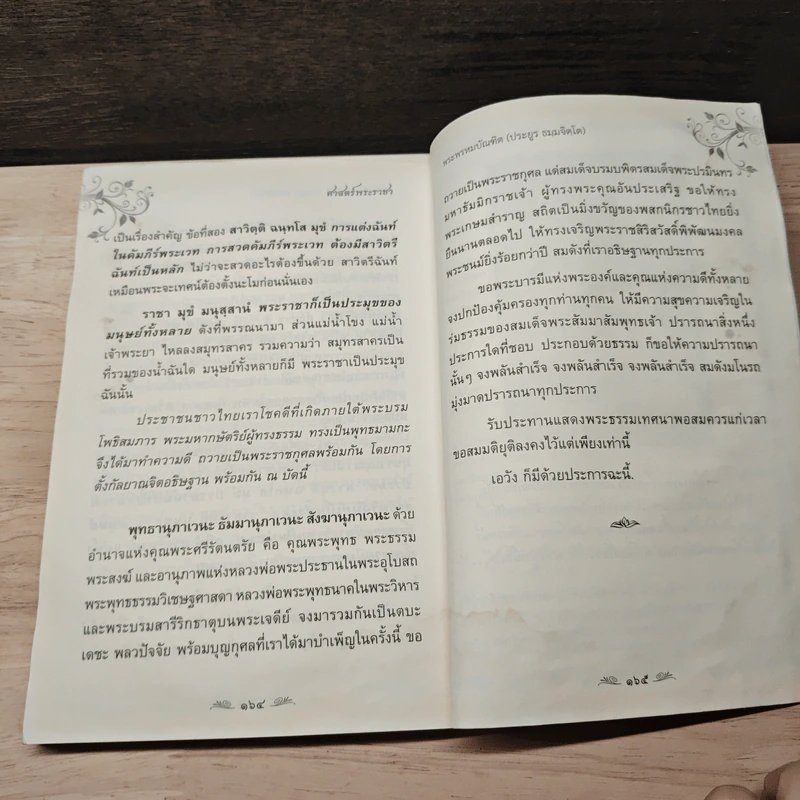 ศาสตร์พระราชา
เป็นเรื่องสำคัญ ข้อที่สอง สาวิตฺติ ฉนฺทโส มุขํ การแต่งฉันท์
ในคัมภีร์พระเวท การสวดคัมภีร์พระเวท ต้องมีสาวิตรี
ฉันท์เป็นหลัก ไม่ว่าจะสวดอะไรต้องขึ้นด้วย สาวิตรีฉันท์
เหมือนพระจะเทศน์ต้องตั้งนะโมก่อนนั่นเอง
ราชา มุขํ มนุสฺสานํ พระราชาก็เป็นประมุขของ
มนุษย์ทั้งหลาย ดังที่พรรณนามา ส่วนแม่น้ำโขง แม่น้ำ
เจ้าพระยา ไหลลงสมุทรสาคร รวมความว่า สมุทรสาครเป็น
ที่รวมของน้ำฉันใด มนุษย์ทั้งหลายก็มี พระราชาเป็นประมุข
ฉันนั้น
ประชาชนชาวไทยเราโชคดีที่เกิดภายใต้พระบรม
โพธิสมภาร พระมหากษัตริย์ผู้ทรงธรรม ทรงเป็นพุทธมามกะ
จึงได้มาทำความดี ถวายเป็นพระราชกุศลพร้อมกัน โดยการ
ตั้งกัลยาณจิตอธิษฐาน พร้อมกัน ณ บัดนี้
พุทธานุภาเวนะ ธัมมานุภาเวนะ สังฆานุภาเวนะ ด้วย
อำนาจแห่งคุณพระศรีรัตนตรัย คือ คุณพระพุทธ พระธรรม
พระสงฆ์ และอานุภาพแห่งหลวงพ่อพระประธานในพระอุโบสถ
พระพุทธธรรมวิเชษฐศาสดา หลวงพ่อพระพุทธนาคในพระวิหาร
และพระบรมสารีริกธาตุบนพระเจดีย์ จงมารวมกันเป็นตบะ
เดชะ พลวปัจจัย พร้อมบุญกุศลที่เราได้มาบำเพ็ญในครั้งนี้ ขอ
๑๖๔
พระพรหมบัณฑิต (ประยูร ธมฺมจิตฺโต)
ถวายเป็นพระราชกุศล แต่สมเด็จบรมบพิตรสมเด็จพระปรมินทร
มหาธัมมิกราชเจ้า ผู้ทรงพระคุณอันประเสริฐ ขอให้ทรง
พระเกษมสำราญ สถิตเป็นมิ่งขวัญของพสกนิกรชาวไทยยิ่ง
ยืนนานตลอดไป ให้ทรงเจริญพระราชสิริสวัสดิ์พิพัฒนมงคล
พระชนม์ยิ่งร้อยกว่าปี สมดังที่เราอธิษฐานทุกประการ
ขอพระบารมีแห่งพระองค์และคุณแห่งความดีทั้งหลาย
จงปกป้องคุ้มครองทุกท่านทุกคน ให้มีความสุขความเจริญใน
ร่มธรรมของสมเด็จพระสัมมาสัมพุทธเจ้า ปรารถนาสิ่งหนึ่ง
ประการใดที่ชอบ ประกอบด้วยธรรม ก็ขอให้ความปรารถนา
นั้นๆ จงพลันสำเร็จ จงพลันสำเร็จ จงพลันสำเร็จ สมดังมโนรถ
มุ่งมาดปรารถนาทุกประการ
รับประทานแสดงพระธรรมเทศนาพอสมควรแก่เวลา
ขอสมมติยุติลงคงไว้แต่เพียงเท่านี้
เอวัง ก็มีด้วยประการฉะนี้.
๑๖๕